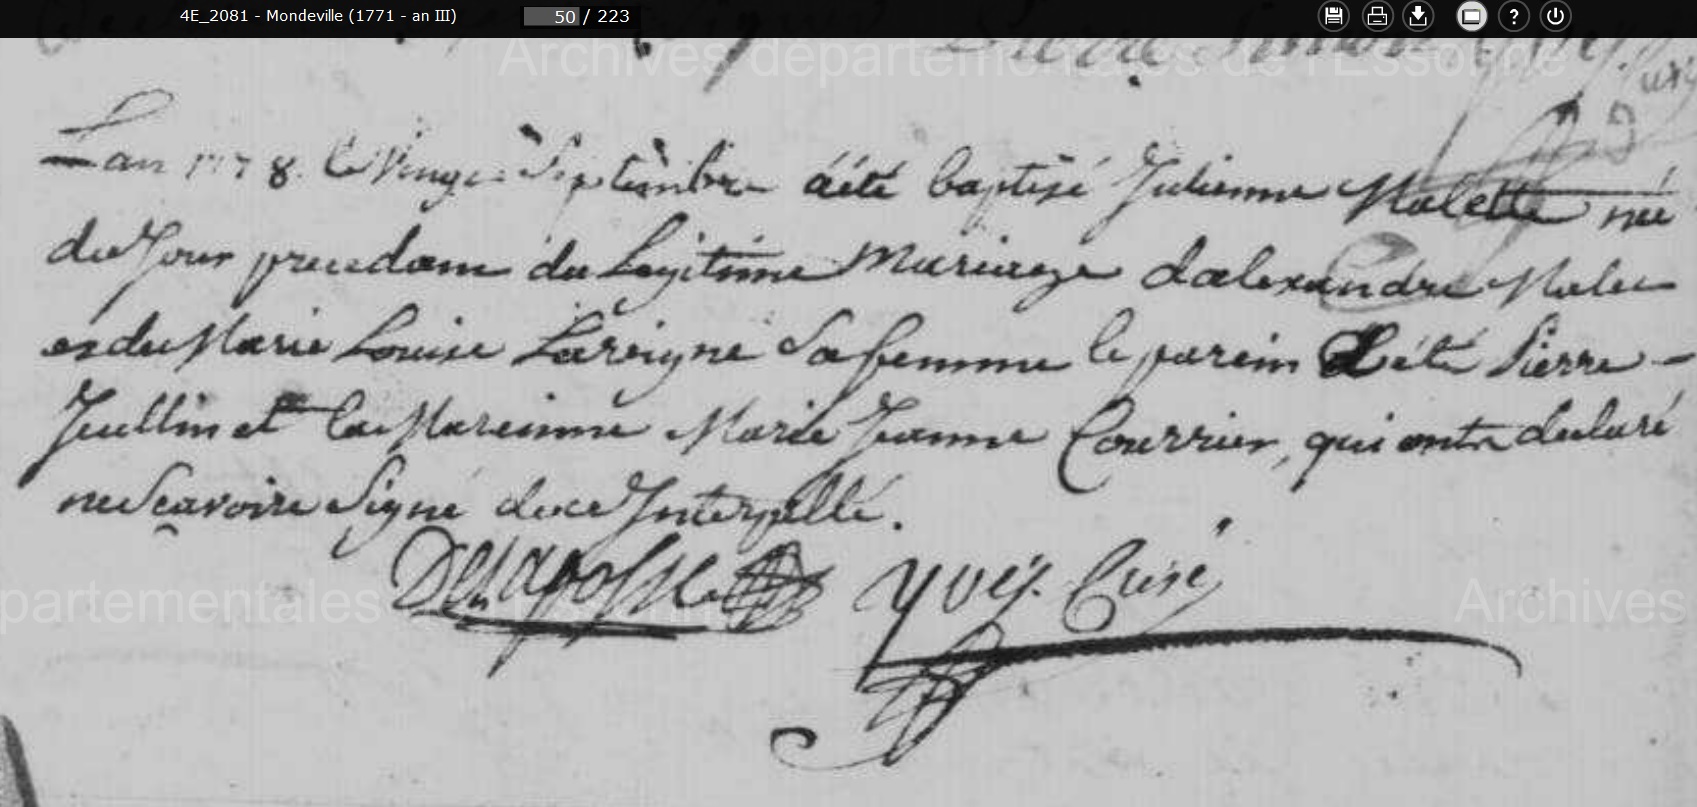 4E_2081 - Mondeville (1771 - an III) 50 / 223
Pierre Simon
Archives départementales de l'Essonne
Lan 1778. le Vingt Septembre áété baptisé Julienne Malette né
du Jour precedam du Legitime Mariage dalexandre Malet
et de Marie Louise Lavigne Sa femme le parein a été Pierre -
Jullin et la Mareinne Marie Jeanne Courrier, qui ont declaré
ne Sçavoire Signé de ce Interpellé.
Yvey. Curé
partementales Archives